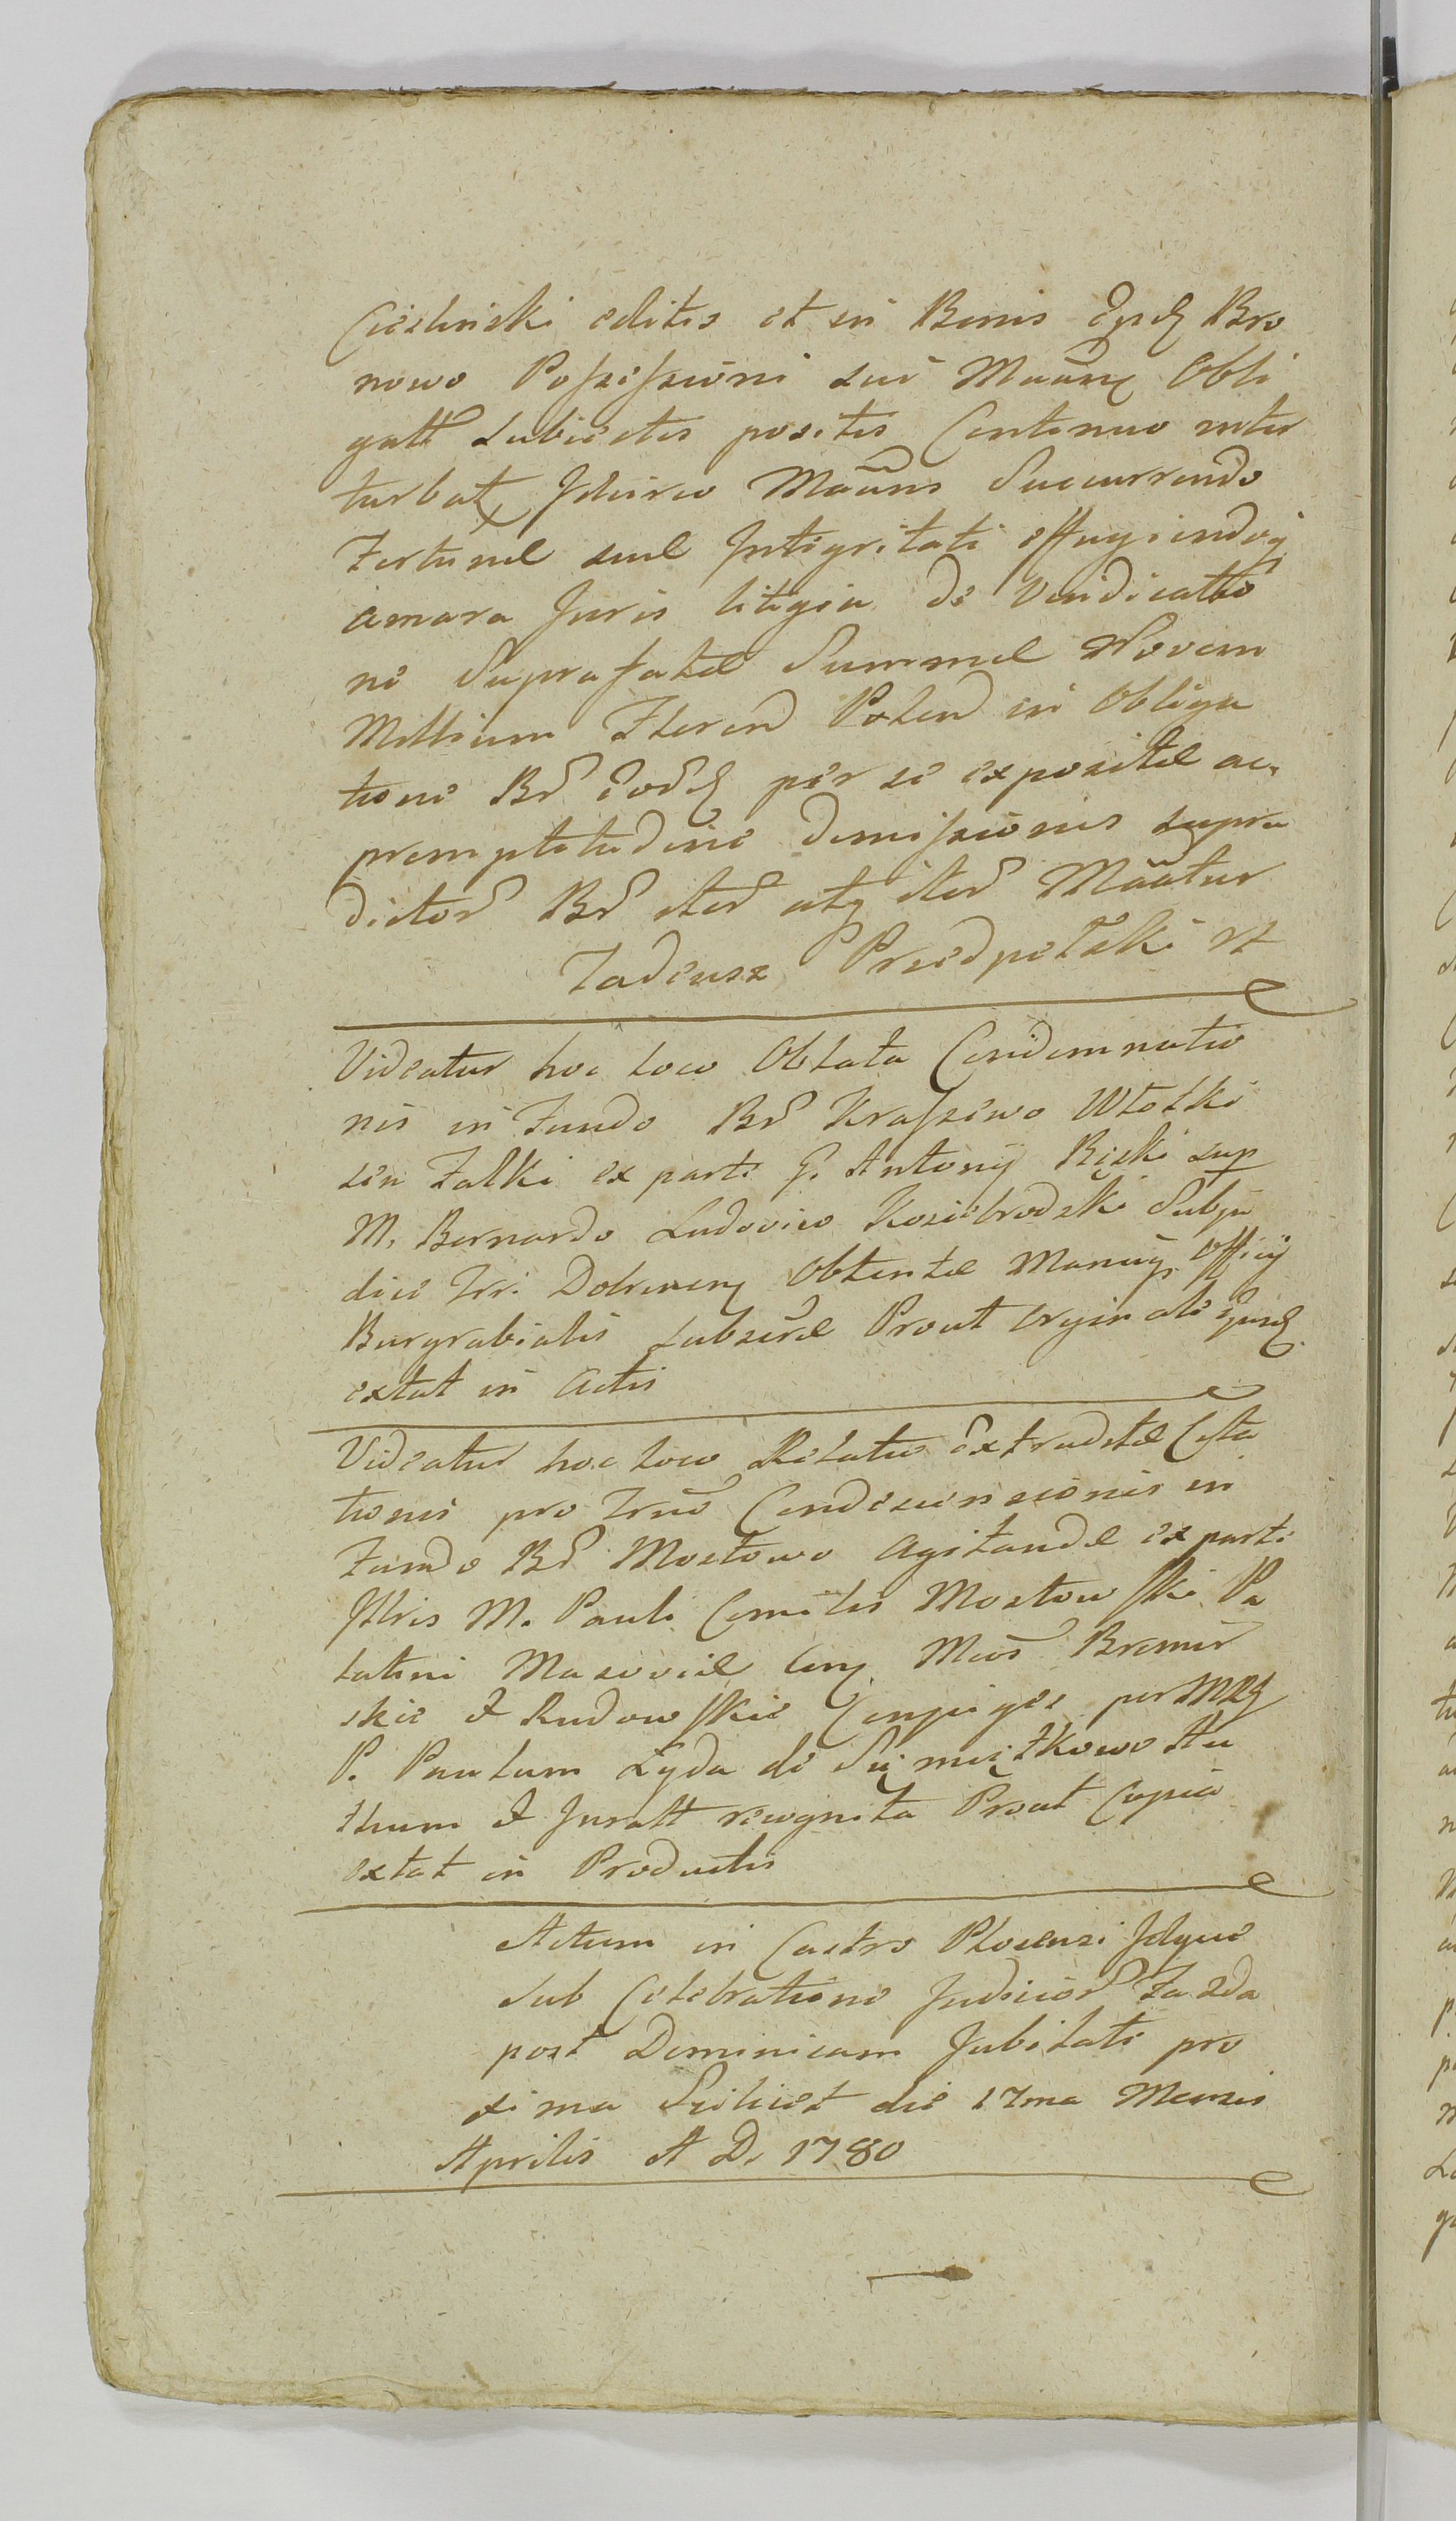 Cieslinski editis et in Bonis Ejusd Bro
nowo Possessioni sui Manñs Obli
gatt Subiectis positis Continuo inter
turbat, Idcirco Mañns Succurrendo
Fortunæ suæ Integritati effugiendoq
amara Juris litigia de Vendicatio
ne Suprafatæ Summæ Novem
Millium Floren Polen in Obliga
tione Br̃ Eord per se expositæ ac
promptitudine Dimissionis supra
dictor Br̃ iter atq iter Mañatur
Tadeusz Przedpełski rt
Videatur hoc loco Oblata Condemnatio
nis in Fundo Br̃ Kraszewo Włotki
seu Falki ex parte G. Antonij Ręski sup
M. Bernardo Ludovico Koziebrodzki Subju
dice Trr. Dobrinen Obtentæ Manuq Officij
Burgrabialis Subscræ Prout Orginale Ejusd
extat in Actis
Videatur hoc loco Relatio Extraditæ Cita
tionis pro Trño Condescensionis in
Fundo Br̃ Mostowo Agitandæ ex parte
Illris M. Pauli Comitis Mostowski Pa
latini Masoviæ Con Mcos Bromir
skie & Rudowskie Conjuges per MRg
P. Paulum Zyda de Siemiątkowo Au
thum & Juratt recognita Prout Copia
extat in Productis
Actum in Castro Plocensi Idque
Sub Celebratione Judicior Fa 2da
post Dominicam Jubilate pro
xima Scilicet die 17ma Mensis
Aprilis A D. 1780